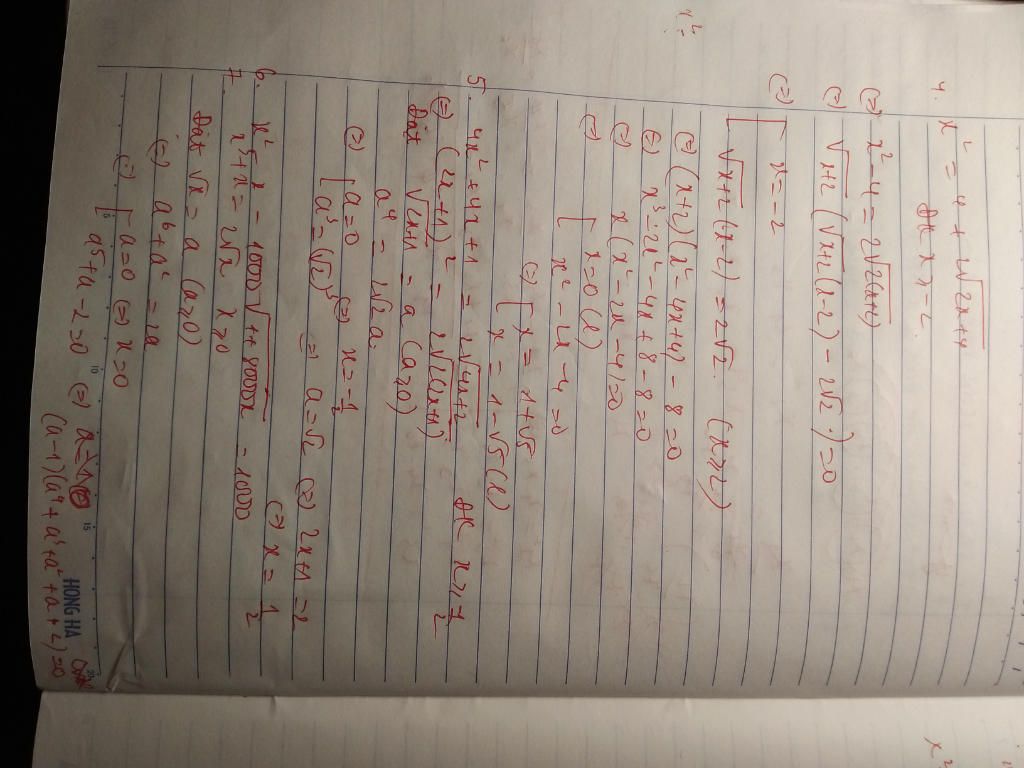 4. x² = 4 + 2√(2x+4)
ĐK x ≥ -2
(=) x² - 4 = 2√(2(x+2))
(=) √(x+2) (√(x+2)(x-2) - 2√2) = 0
(=) [ x = -2
[ √(x+2)(x-2) = 2√2. (x ≥ 2)
(=) (x+2)(x² - 4x + 4) - 8 = 0
(=) x³ - 2x² - 4x + 8 - 8 = 0
(=) x(x² - 2x - 4) = 0
(=) [ x = 0 (l)
[ x² - 2x - 4 = 0
(=) [ x = 1 + √5
[ x = 1 - √5 (l)
5. 4x² + 4x + 1 = 2√(4x+2) ĐK x ≥ -1/2
(=) (2x+1)² = 2√(2(2x+1))
Đặt √(2x+1) = a (a ≥ 0)
a⁴ = 2√2 a
(=) [ a = 0 (=) x = -1/2
[ a³ = (√2)³ (=) a = √2 (=) 2x+1 = 2
(=) x = 1/2
6. x² - x - 1000√(1+8000x) = 1000
7. x³ + x = 2√x x ≥ 0
Đặt √x = a (a ≥ 0)
(=) a⁶ + a² = 2a
(=) [ a = 0 (=) x = 0
[ a⁵ + a - 2 = 0 (=) a = 1
(a-1)(a⁴ + a³ + a² + a + 2) = 0
HONG HA
x²